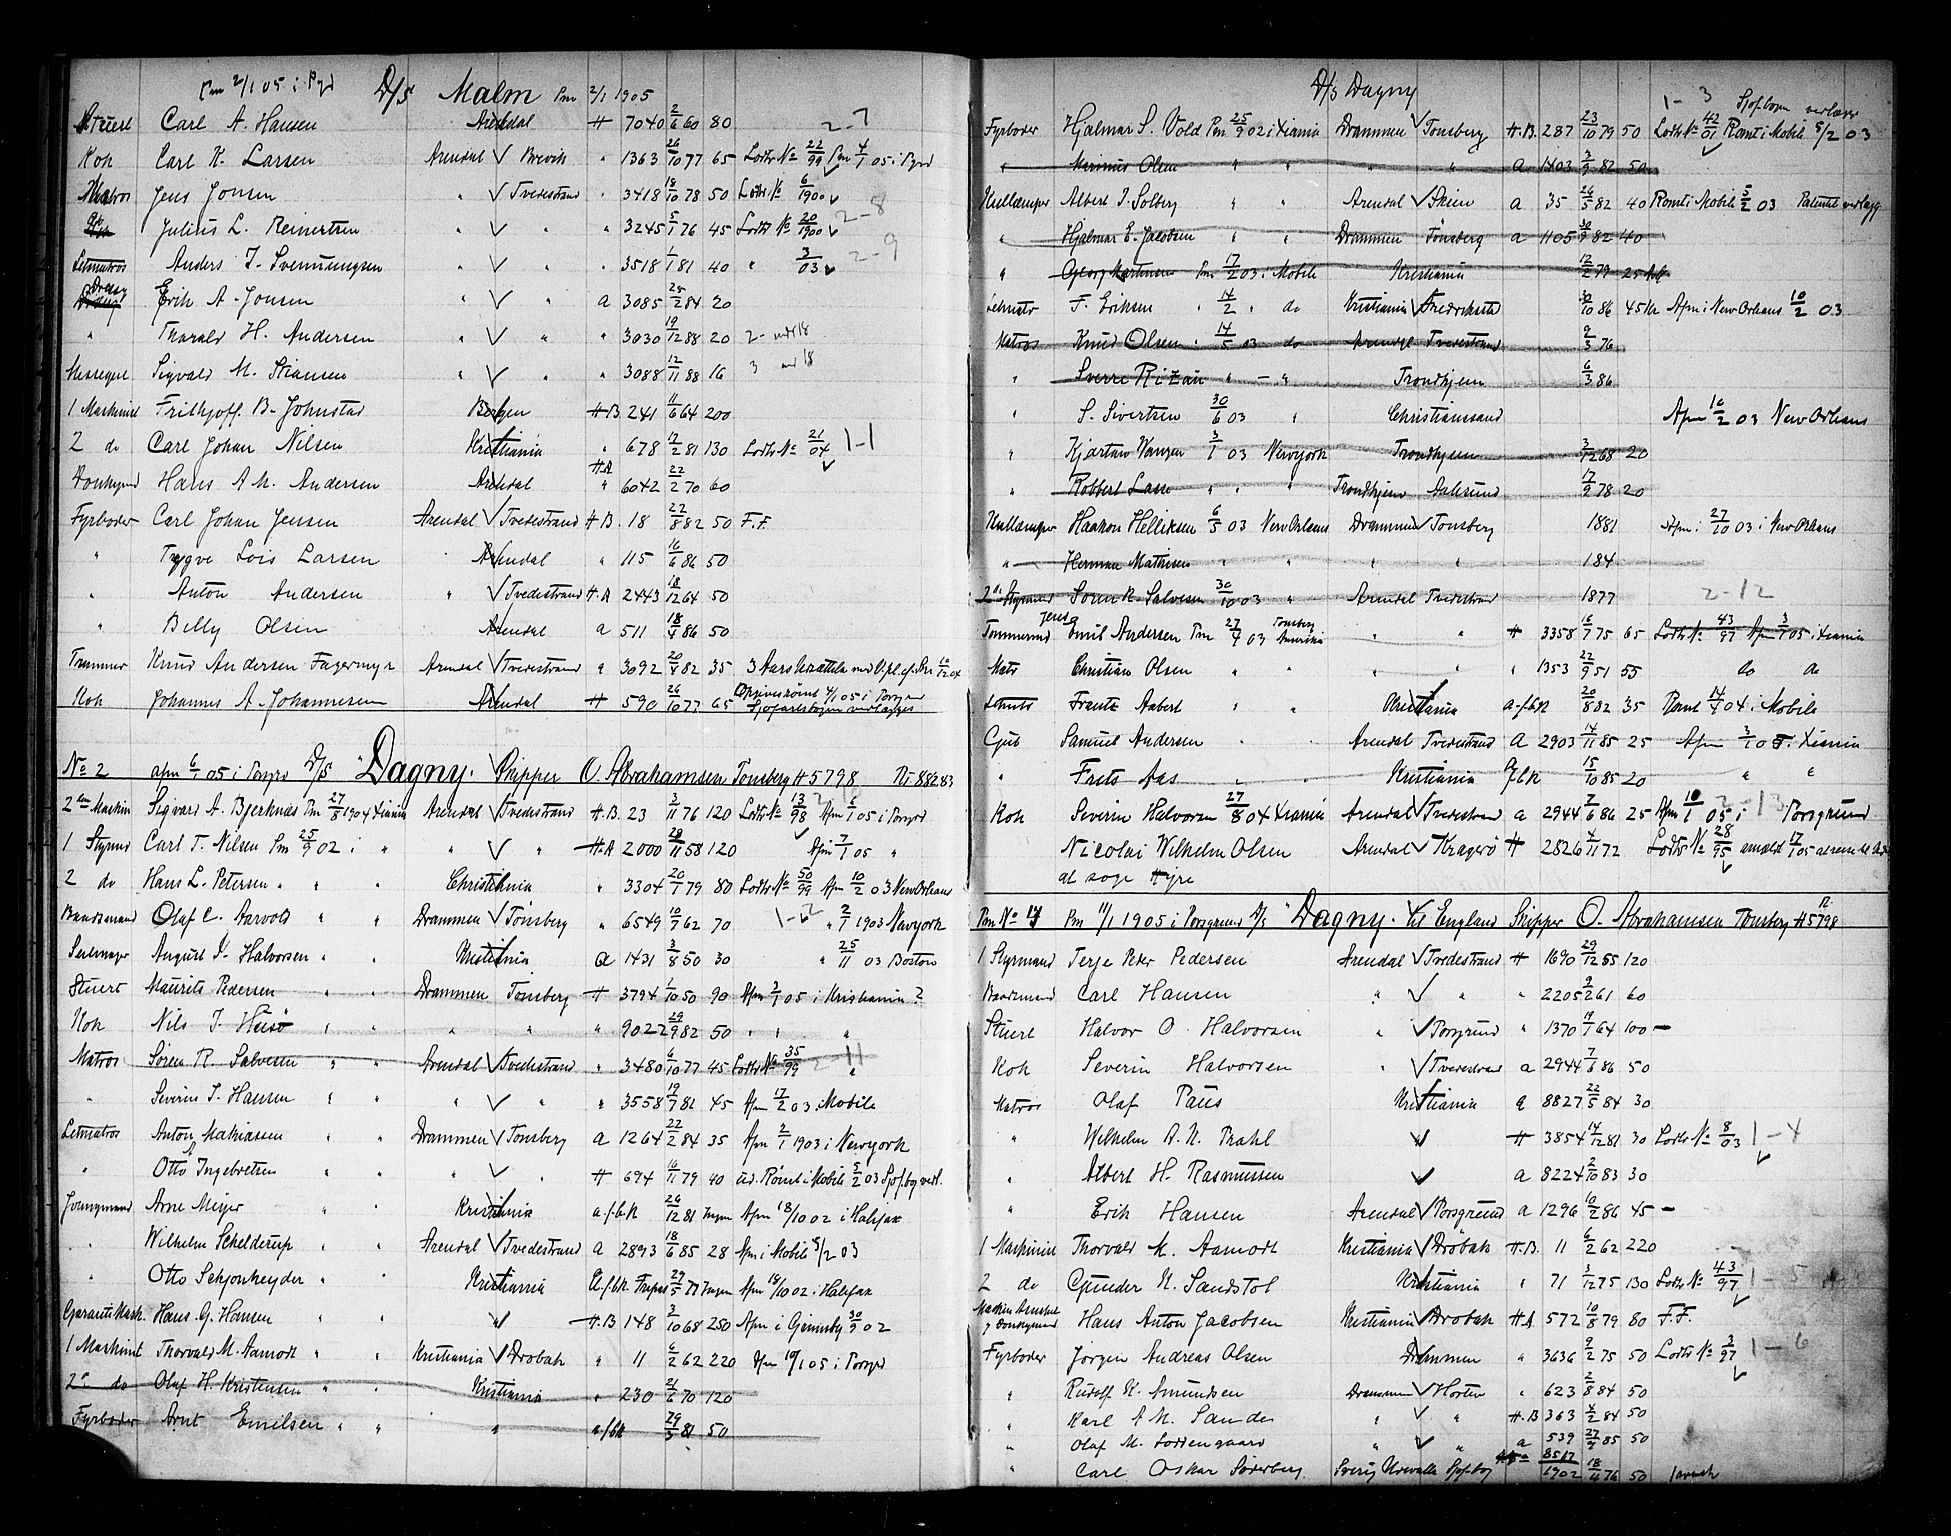 Pm 2/1 05 i Pgrd D/S Malm Pm 2/1 1905
Stuert Carl A. Hansen Arendal H 7040 2/6 60 80 2-7
Kok Carl K. Larsen Arendal V Brevik " 1363 26/10 77 65 Lodts No 22/99 Pm 4/1 05 i Pgrd
Matros Jens Jonsen " V Tvedestrand " 3418 18/10 78 50 Lodts No 6/1900
Julius L. Reinertsen " V " " 3245 5/1 76 45 Lodts No 20/1900 2-8
Letmatros Anders T. Svenningsen " V " " 3518 1/1 81 40 " 3/03 2-9
Dreng Erik A. Jonsen " V " a 3085 25/2 84 20
" Tharald H. Andersen " V " " 3030 19/12 88 20
Messegut Sigvald M. Stiansen " V " " 3088 12/11 88 16
1 Maskinist Frithjoff B. Johnstad Bergen H.B 241 11/6 64 200
2 do Carl Johan Nilsen Kristiania " 678 17/2 81 130 Lodts No 21/04 1-1
Donkeymd Hans A M. Andersen Arendal H.A " 6042 22/2 70 60
Fyrboder Carl Johan Jensen Arendal V Tvedestrand H.B. 18 22/8 82 50 F.F.
" Trygve Lois Larsen Arendal " 115 16/6 86 50
" Anton Andersen " V Tvedestrand H.A 2443 18/12 64 50
" Billy Olsen Arendal a 511 18/4 86 50
Trimmer Knud Andersen Fagermyr Arendal V Tvedestrand " 3092 20/4 82 35
Kok Johannes A. Johannesen Arendal H 590 26/10 77 65
No 2 afm 6/1 05 i Porgrd D/S Dagny. Skipper O. Abrahamsen Tonsberg H 5798
2den Maskin Sigvard A. Bjerknæs Pm 27/8 1904 Xiania Arendal V Tvedestrand H.B. 23 3/11 76 120 Lodts No 13/98 Afm 6/1 05 i Porgrd
1 Styrmd Carl T. Nilsen Pm 25/9 02 i " " V " H.A 2000 28/11 58 120 Afm 7/1 05 "
2 do Hans L. Petersen " " Christiania " 3304 20/1 79 80 Lodts No 50/99 Afm 10/2 03 New Orleans
Baadsmand Olaf C. Aarvold " " Drammen V Tönsberg " 6549 10/9 62 70 1-2 " 2/1 1903 Newyork
Seilmager August J. Halvorsen " " Kristiania a 1431 3/8 50 30 " 25/11 03 Boston
Stuert Maurits Pedersen " " Drammen Tonsberg H 3794 1/10 50 90 Afm 3/1 05 i Kristiania ?
Kok Nils J. Huso " " " " " 9022 29/9 82 50 " " "
Matros Sören R. Salvesen " " Arendal V Tvedestrand " 3480 6/10 77 45 Lodts No 35/99 2-11 "
" Severin T. Hansen " " " V " " 3558 19/7 81 45 Afm 17/2 03 i Mobile
Letmatros Anton Mathiassen " " Drammen V Tonsberg a 1264 22/2 84 35 Afm 2/1 1903 i Newyork
" Otto A Ingebretsen " " " V " H 694 16/11 79 40 ud. Römt i Mobile 5/2 03
Jonngmand Arne Meyer " " Kristiania a.f.b.k 26/12 81 Ingen Afm 18/10 02 i Halifax
" Wilhelm Schelderup " " Arendal V Tvedestrand a 2893 18/6 85 28 Afm i Mobile 5/2 03
" Otto Schjonheyder " " Kristiania 29/5 77 Ingen Afm 18/10 02 i Halifax
Garanti Mask. Hans G. Hansen " V H.B 148 3/10 68 250 Afm i Grimsby 30/9 02
1 Maskinist Thorvald M. Aamodt " " Kristiania V Drobak " 11 6/2 62 220 Afm 10/1 05 i Porgrd
2 do Olaf H. Kristensen " " Kristiania " 230 21/6 70 120
Fyrboder Arnt Emilsen " " " a.f.b.k 29/3 81 50
D/S Dagny
Fyrboder Hjalmar S. Vold Pm 25/9 02 i Xiania Drammen V Tonsberg H.B. 287 23/10 79 50 Lodts No 42/01 Römt i Mobile 5/2 03 1-3 Sjofbogen verlægg
" Marinius Olsen " " " " a 1403 3/9 82 50
Kullæmper Albert J. Solberg " " Arendal V Skien a 35 26/5 82 40 Römt i Mobile 5/2 03
" Hjalmar E. Jacobsen " " Drammen Tönsberg a 1105 30/9 82 40
" Georg Martinsen Pm 17/2 03 i Mobile Kristiania 12/2 79 25
Letmatr F. Eriksen " 14/2 " do Kristiania V Fredrikstad 30/10 86 45 Kr Afm i New Orleans 10/2 03
Matros Knud Olsen " 14/5 03 do Arendal Tvedestrand 9/3 76
" Sverre Rizau " " Trondhjem 6/3 86
" S. Sivertsen 30/6 03 " Christianssand Afm 16/2 03 New Orleans
" Kjartan Vangen 3/1 03 Newyork Trondhjem 3/12 68 20
" Robbert Lasse " " " Trondhjem Aalesund 17/9 78 20
Kullæmper Haakon Helliksen 6/5 03 New Orleans Drammen V Tonsberg 1881 Afm i 27/10 03 i New Orleans
" Herman Mathisen " " " " 184
2den Styrmand Soren R. Salvesen 30/10 03 " Arendal Tvedestrand 1877 2-12
Tommermd Emil Jensen Andersen Pm 27/4 03 Tonsberg Amerika " " H 3358 16/7 75 65 Lodts No 43/97 Afm 3/1 05 i Xiania
Matr Christian Olsen " " " " " 1353 22/9 51 55 do do
Letmatr Frantz Aabert " " Kristiania a.f.b.k 20/8 82 35 Römt 14/4 04 i Mobile
Gut Samuel Andersen " " Arendal Tvedestrand A 2903 14/11 85 25 Afm 3/1 05. Xiania
" Frits Aas " " Kristiania 15/10 85 20 " "
Kok Severin Halvorsen 27/8 04 Xiania Arendal V Tvedestrand a 2944 7/6 86 25 Afm 10/1 05 i Porsgrund 2-13
Nicolai Wilhelm Olsen Arendal V Kragerö H 2826 4/11 72 Lodts No 28/95 anmeldt 17/1 05
at søge Hyre
Pm 11/1 1905 i Porsgrund D/S "Dagny". til England Skipper O. Abrahamsen Tonsberg H 5798
1 Styrmand Terje Peter Pedersen Arendal V Tvedestrand H 1690 29/12 55 120
Baadsmand Carl Hansen " V " " 2205 9/2 61 60
Stuert Halvor O. Halvorsen " V Porsgrund " 1370 19/1 64 100 -
Kok Severin Halvorsen " V Tvedestrand a 2944 7/6 86 50
Matros Olaf Paus Kristiania a 8827 22/5 84 30
" Wilhelm A. N. Prahl V H 3854 14/12 81 30 Lodts No 8/03 1-4
" Albert H. Rasmussen V a 8224 2/10 83 30
" Erik Hansen Arendal V Porsgrund a 1296 10/2 86 45 -
1 Maskinist Thorvald M. Aamodt Kristiania V Dröbak H.B. 11 6/2 62 220
2 do Gunder N. Sandstol Kristiania " 71 3/12 75 130 Lodts No 43/97 1-5
Maskin Assistent og Donkeymand Hans Anton Jacobsen Kristiania V Drobak H.A 572 10/8 79 80 F.F.
Fyrboder Jorgen Andreas Olsen Drammen " 3636 9/2 75 50 Lodts No 3/97 1-6
" Rudolf K. Amundsen Drammen V Horten " 623 2/8 84 50
" Karl A M. Sander " V " H.B 363 4/2 84 50
" Olaf M. Sorrengaard " V " a 539 27/9 85 50
" Carl Oskar Söderberg Sverig Udevalla Sjof.bog 8517 1902 18/11 76 50 svensk